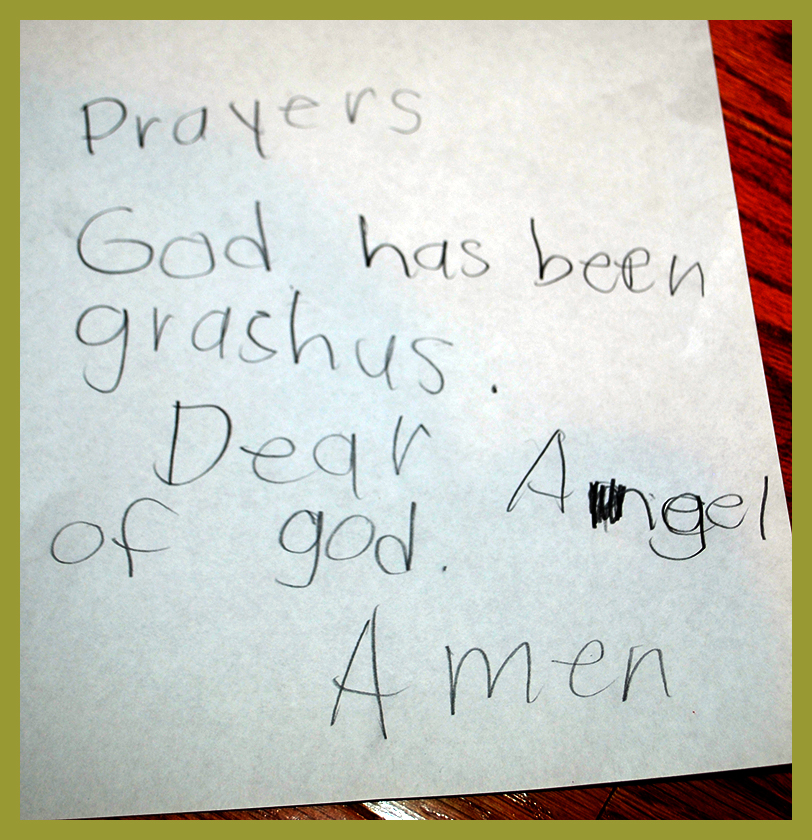 Prayers
God has been
grashus.
Dear Angel
of god.
Amen